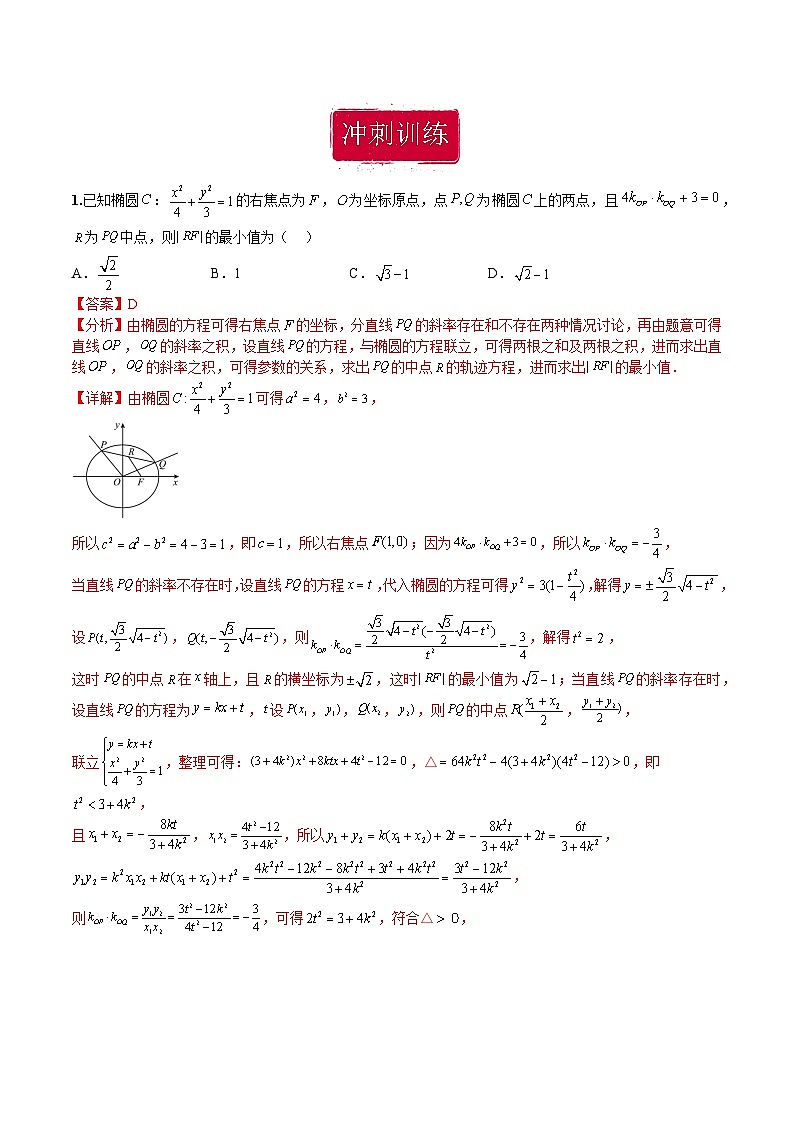 冲刺训练
1.已知椭圆C：x²/4+y²/3=1的右焦点为F，O为坐标原点，点P,Q为椭圆C上的两点，且4k_{OP}·k_{OQ}+3=0，
R为PQ中点，则|RF|的最小值为（　）
A．√2/2　B．1　C．√3−1　D．√2−1
【答案】D
【分析】由椭圆的方程可得右焦点F的坐标，分直线PQ的斜率存在和不存在两种情况讨论，再由题意可得
直线OP，OQ的斜率之积，设直线PQ的方程，与椭圆的方程联立，可得两根之和及两根之积，进而求出直
线OP，OQ的斜率之积，可得参数的关系，求出PQ的中点R的轨迹方程，进而求出|RF|的最小值．
【详解】由椭圆C:x²/4+y²/3=1可得a²=4，b²=3，
y
P
R
Q
O F x
所以c²=a²−b²=4−3=1，即c=1，所以右焦点F(1,0)；因为4k_{OP}·k_{OQ}+3=0，所以k_{OP}·k_{OQ}=−3/4，
当直线PQ的斜率不存在时，设直线PQ的方程x=t，代入椭圆的方程可得y²=3(1−t²/4)，解得y=±√3/2√(4−t²)，
设P(t,√3/2√(4−t²))，Q(t,−√3/2√(4−t²))，则k_{OP}·k_{OQ}=(√3/2√(4−t²)(−√3/2√(4−t²)))/t²=−3/4，解得t²=2，
这时PQ的中点R在x轴上，且R的横坐标为±√2，这时|RF|的最小值为√2−1；当直线PQ的斜率存在时，
设直线PQ的方程为y=kx+t，t设P(x₁，y₁)，Q(x₂，y₂)，则PQ的中点R((x₁+x₂)/2，(y₁+y₂)/2)，
联立{y=kx+t，x²/4+y²/3=1，整理可得：(3+4k²)x²+8ktx+4t²−12=0，△=64k²t²−4(3+4k²)(4t²−12)>0，即
t²<3+4k²，
且x₁+x₂=−8kt/(3+4k²)，x₁x₂=(4t²−12)/(3+4k²)，所以y₁+y₂=k(x₁+x₂)+2t=−8k²t/(3+4k²)+2t=6t/(3+4k²)，
y₁y₂=k²x₁x₂+kt(x₁+x₂)+t²=(4k²t²−12k²−8k²t²+3t²+4k²t²)/(3+4k²)=(3t²−12k²)/(3+4k²)，
则k_{OP}·k_{OQ}=y₁y₂/x₁x₂=(3t²−12k²)/(4t²−12)=−3/4，可得2t²=3+4k²，符合△>0，